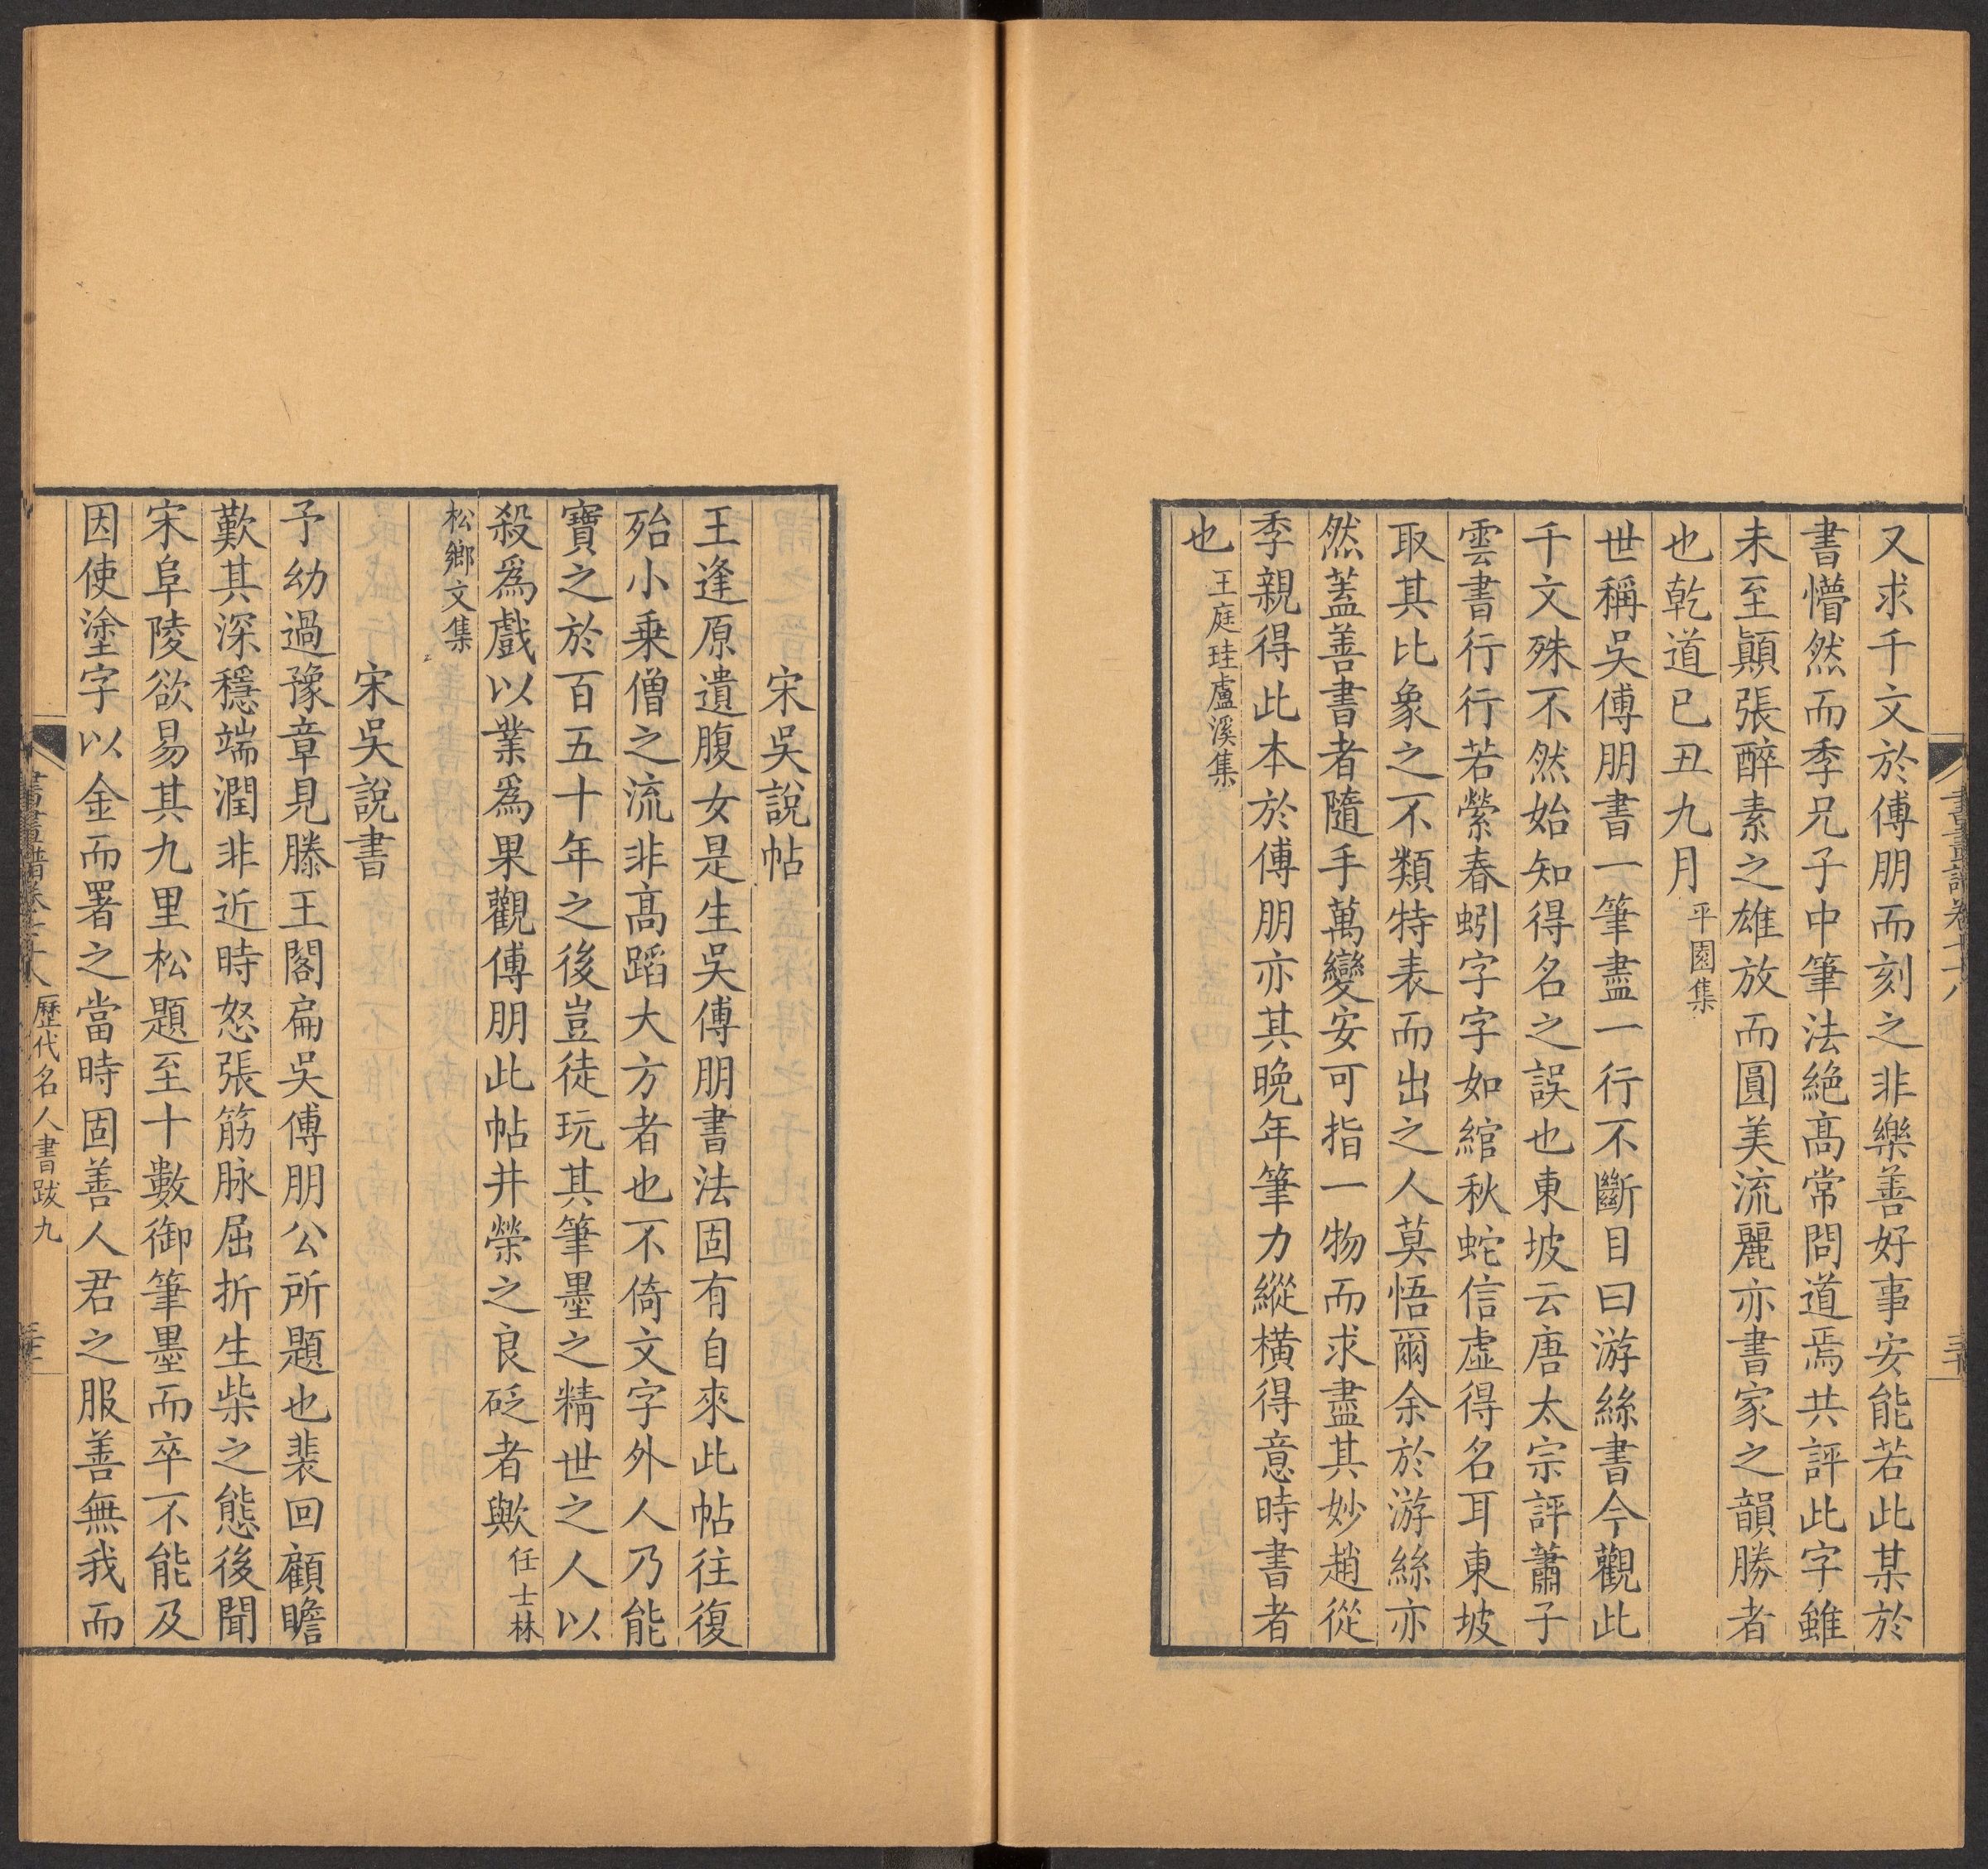 又求千文於傅朋而刻之非樂善好事安能若此某於
書懵然而季兄子中筆法絶髙常問道焉共評此字雖
未至顛張醉素之雄放而圓美流麗亦書家之韻勝者
也乾道已丑九月 平園集
世稱吳傅朋書一筆盡一行不斷目曰游絲書今觀此
千文殊不然始知得名之誤也東坡云唐太宗評蕭子
雲書行行若縈春蚓字字如綰秋蛇信虛得名耳東坡
取其比象之不類特表而出之人莫悟爾余於游絲亦
然蓋善書者隨手萬變安可指一物而求盡其妙趙從
季親得此本於傅朋亦其晚年筆力縱横得意時書者
也 王庭珪盧溪集
宋吳說帖
王逢原遺腹女是生吳傅朋書法固有自來此帖往復
殆小乗僧之流非髙蹈大方者也不倚文字外人乃能
寶之於百五十年之後豈徒玩其筆墨之精世之人以
殺爲戲以業爲果觀傅朋此帖井榮之良砭者歟 任士林
松鄉文集
宋吳說書
予幼過豫章見滕王閣扁吳傅朋公所題也裴回顧瞻
歎其深穩端潤非近時怒張筋脉屈折生柴之態後聞
宋阜陵欲易其九里松題至十數御筆墨而卒不能及
因使塗字以金而署之當時固善人君之服善無我而
書畫譜卷七十八 歷代名人書跋九